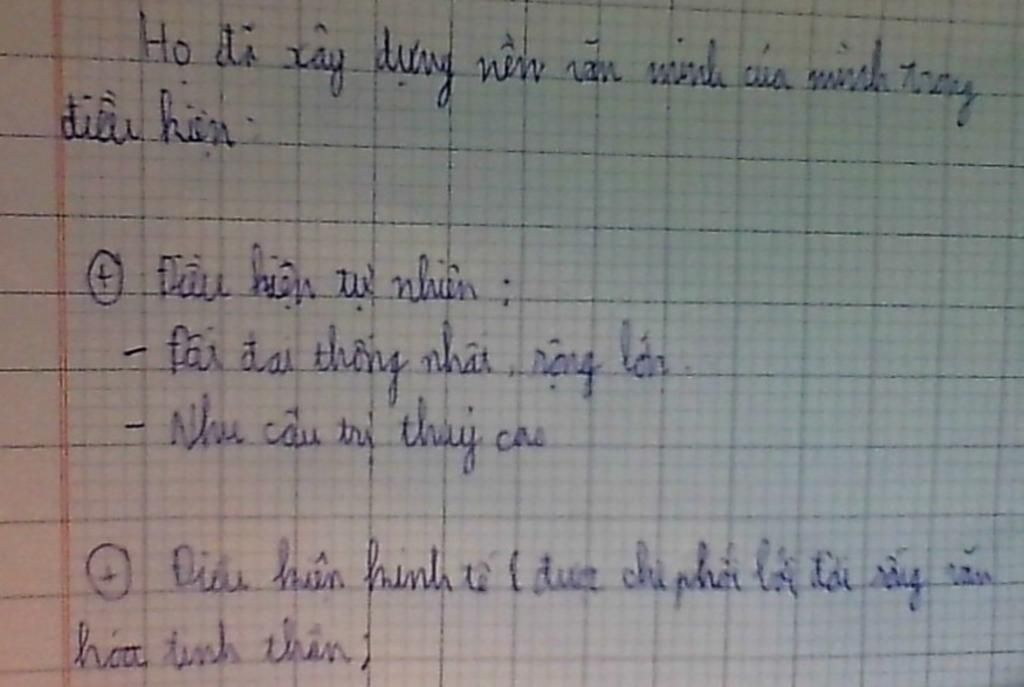 Họ đã xây dựng nền văn minh của mình trong
điều kiện:
+ Điều kiện tự nhiên:
- Đất đai thống nhất, rộng lớn.
- Nhu cầu trị thủy cao
+ Điều kiện kinh tế (được chi phối bởi đời sống văn
hóa tinh thần)